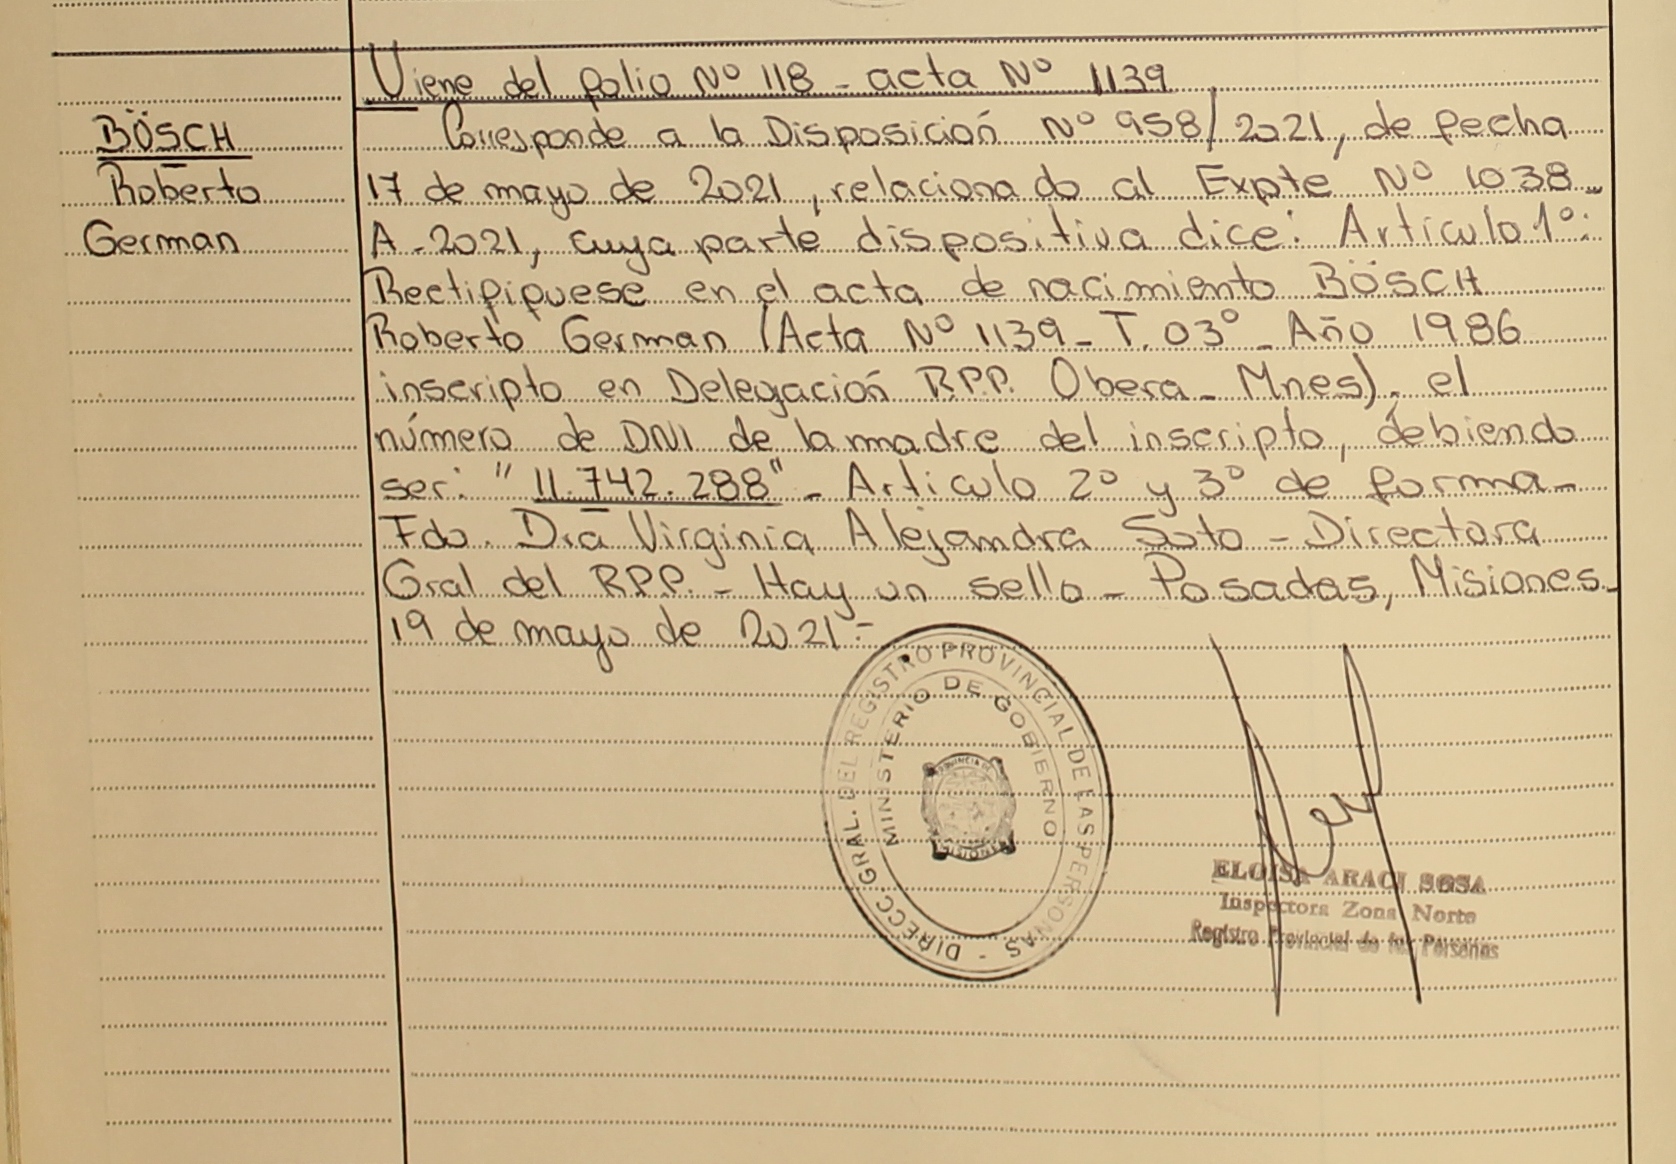 Viene del folio Nº 118 - acta Nº 1139
BÖSCH
Roberto
German
Corresponde a la Disposición Nº 958/2021, de fecha
17 de mayo de 2021, relacionado al Expte Nº 1038-
A-2021, cuya parte dispositiva dice: Artículo 1º:
Rectifíquese en el acta de nacimiento BÖSCH
Roberto German (Acta Nº 1139 - T. 03º - Año 1986
inscripto en Delegación R.P.P. Obera - Mnes), el
número de DNI de la madre del inscripto, debiendo
ser: "11.742.288" - Artículo 2º y 3º de forma -
Fdo. Dra Virginia Alejandra Soto - Directora
Gral del R.P.P. - Hay un sello - Posadas, Misiones -
19 de mayo de 2021 -
DIRECC. GRAL. DEL REGISTRO PROVINCIAL DE LAS PERSONAS -
MINISTERIO DE GOBIERNO
ELOISA ARACI SOSA
Inspectora Zona Norte
Registro Provincial de las Personas